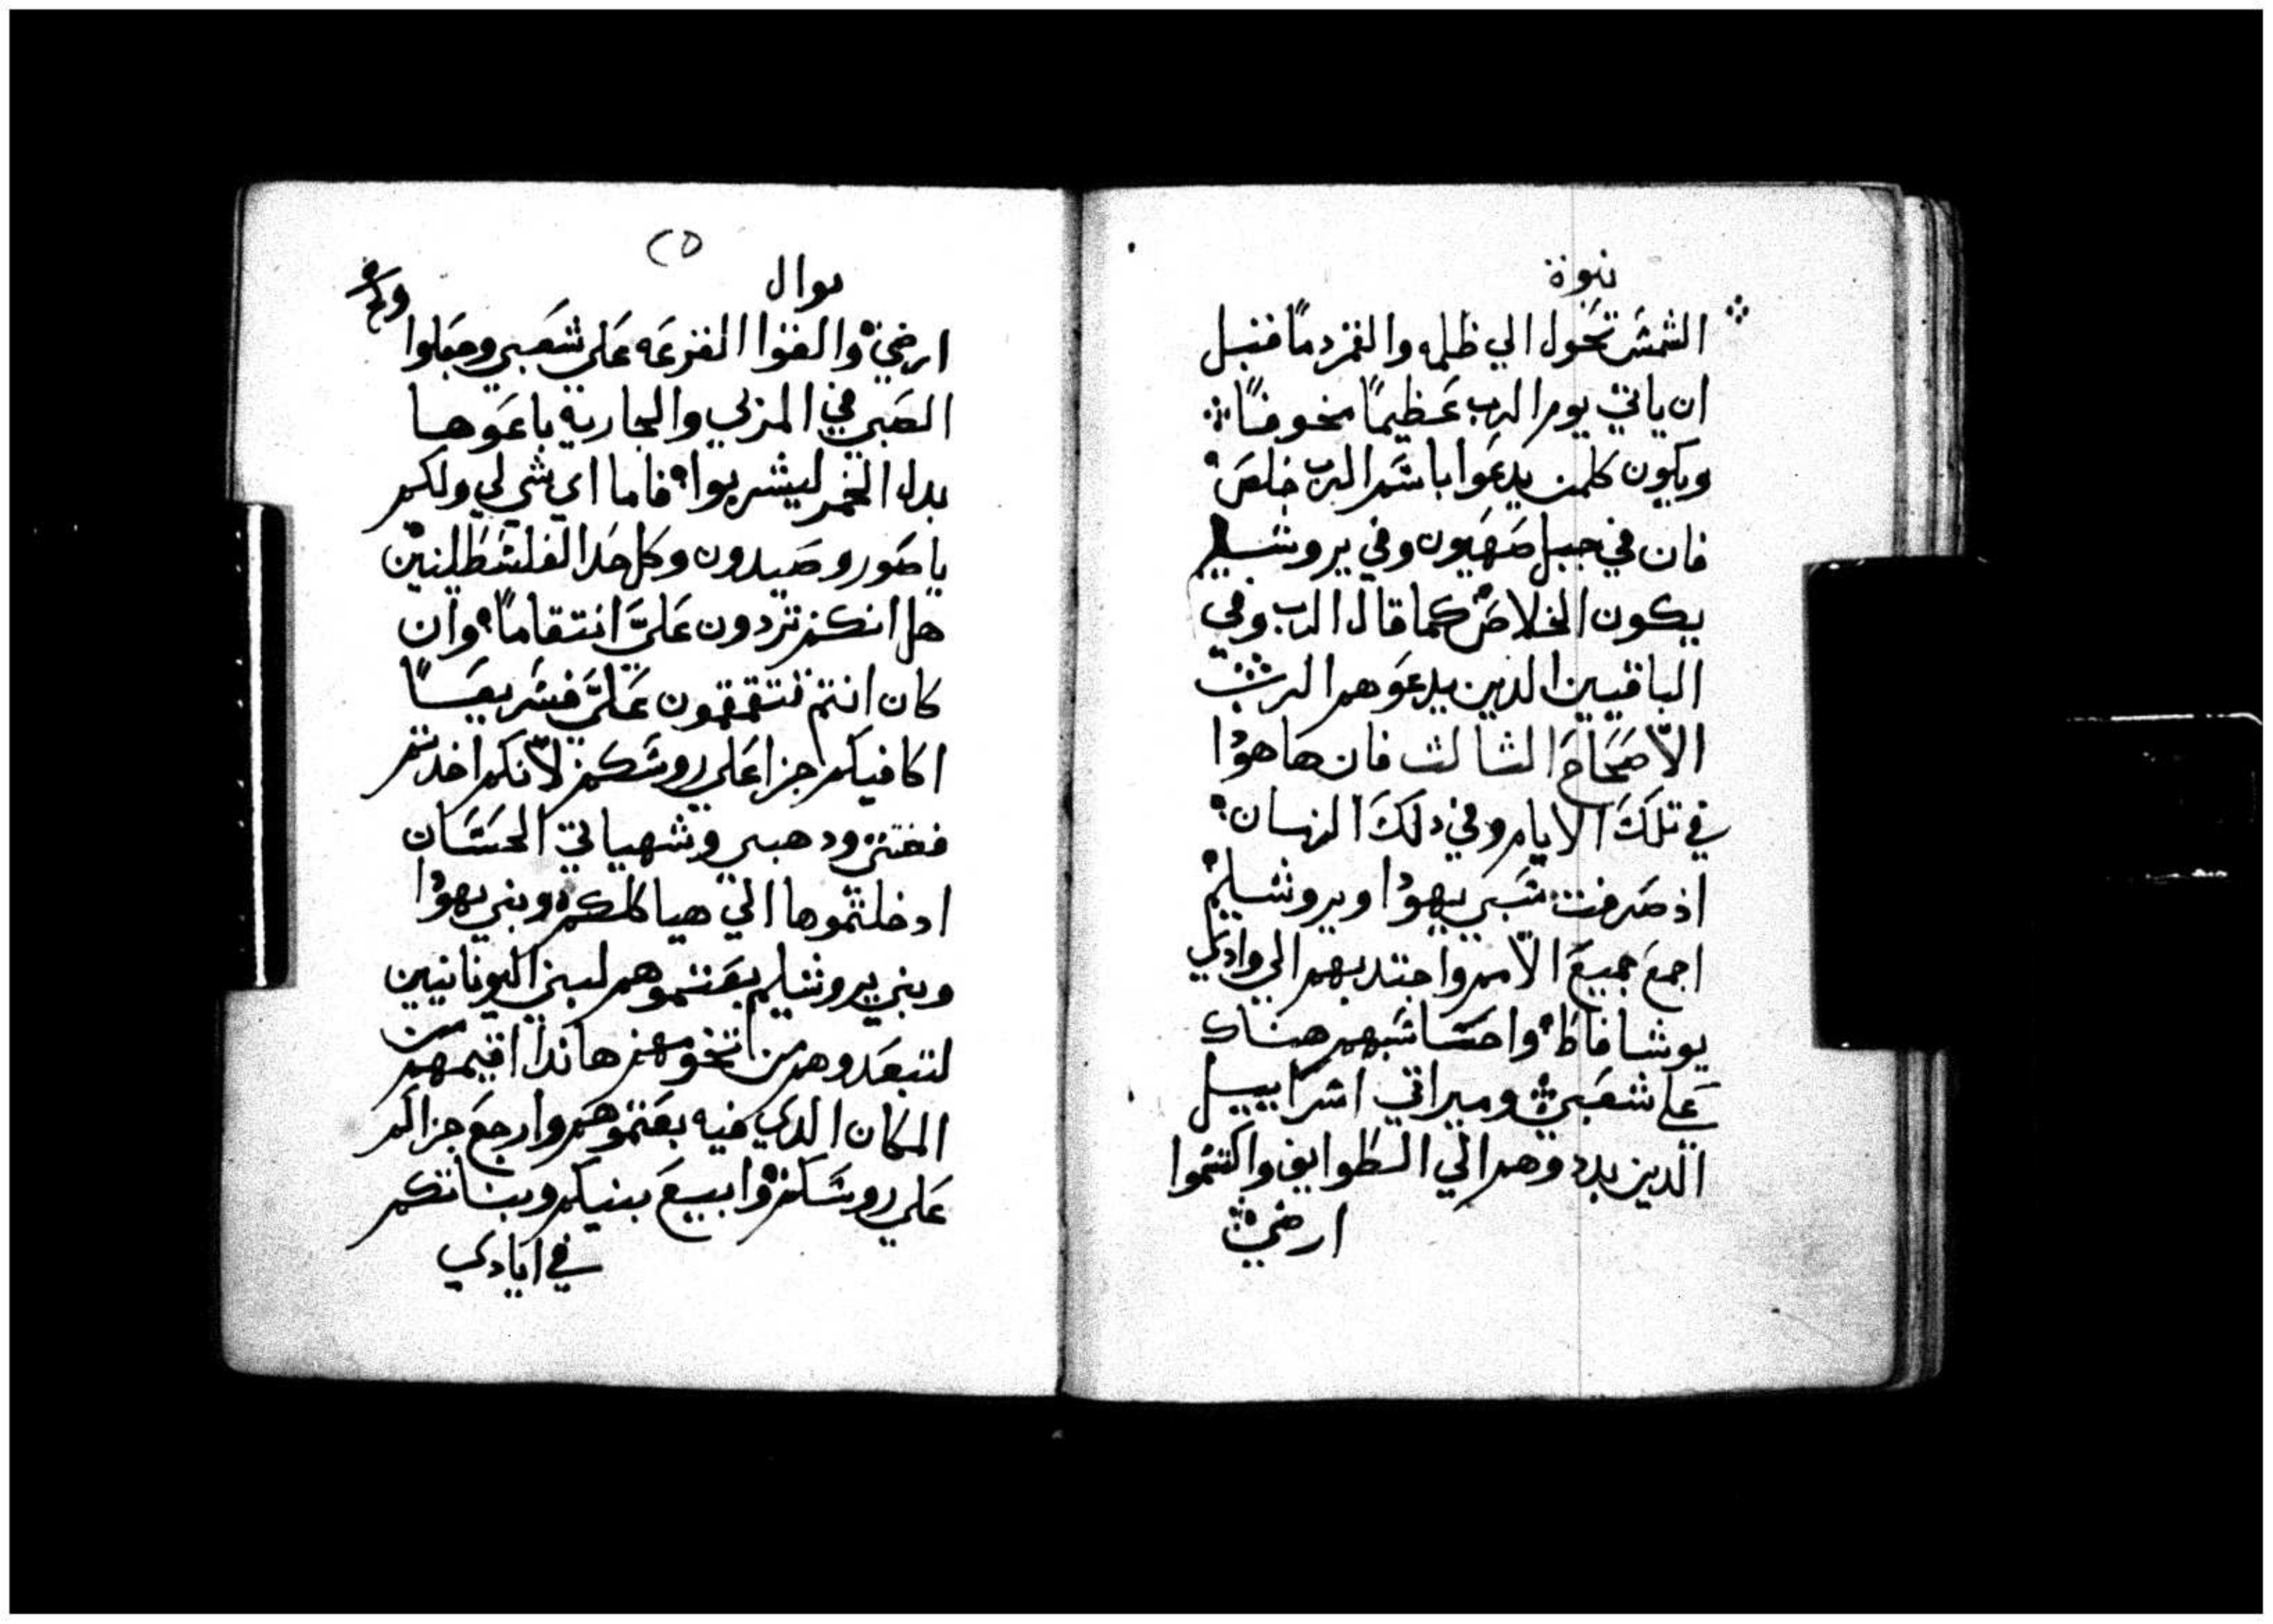 نبوة
الشمس تحول الي ظلمه والقمر دمًا قبل
ان ياتي يوم الرب عظيمًا مخوفًا
ويكون كلمن يدعوا باسم الرب خلص
فان في جبل صهيون وفي يروشليم
يكون الخلاص كما قال الرب وفي
الباقيين الدين يدعوهم الرب
الاصحاح الثالث فان هاهودا
في تلك الايام وفي دلك الزمان
اذ صرفت سبي يهودا ويروشليم
اجمع جميع الامم واجتدبهم الي وادي
يوشافاط واحاسبهم هناك
علي شعبي وميراتي اسراييل
الدين بددوهم الي الطوايف واقتسموا
ارضي
٢٥
يوال
ارضي والقوا القرعه علي شعبي وجعلوا
الصبي في المزني والجاريه باعوها
بدل الخمر ليشربوا فاما اي شي لي ولكم
ياصور وصيدون وكل حد الفلسطينين
هل انكم تردون عليَّ انتقامًا وان
كان انتم تنتقمون عليَّ فسريعًا
اكافيكم جزا علي روسكم لانكم اخدتم
فضتي ودهبي وشهياتي الحسان
ادخلتموها الي هياكلكم وبني يهودا
وبني يروشليم بعتموهم لبني اليونانيين
لتبعدوهم من تخومهم هاندا اقيمهم من
المكان الدي فيه بعتموهم وارجع جزاكم
علي روسكم وابيع بنيكم وبناتكم
في ايادي